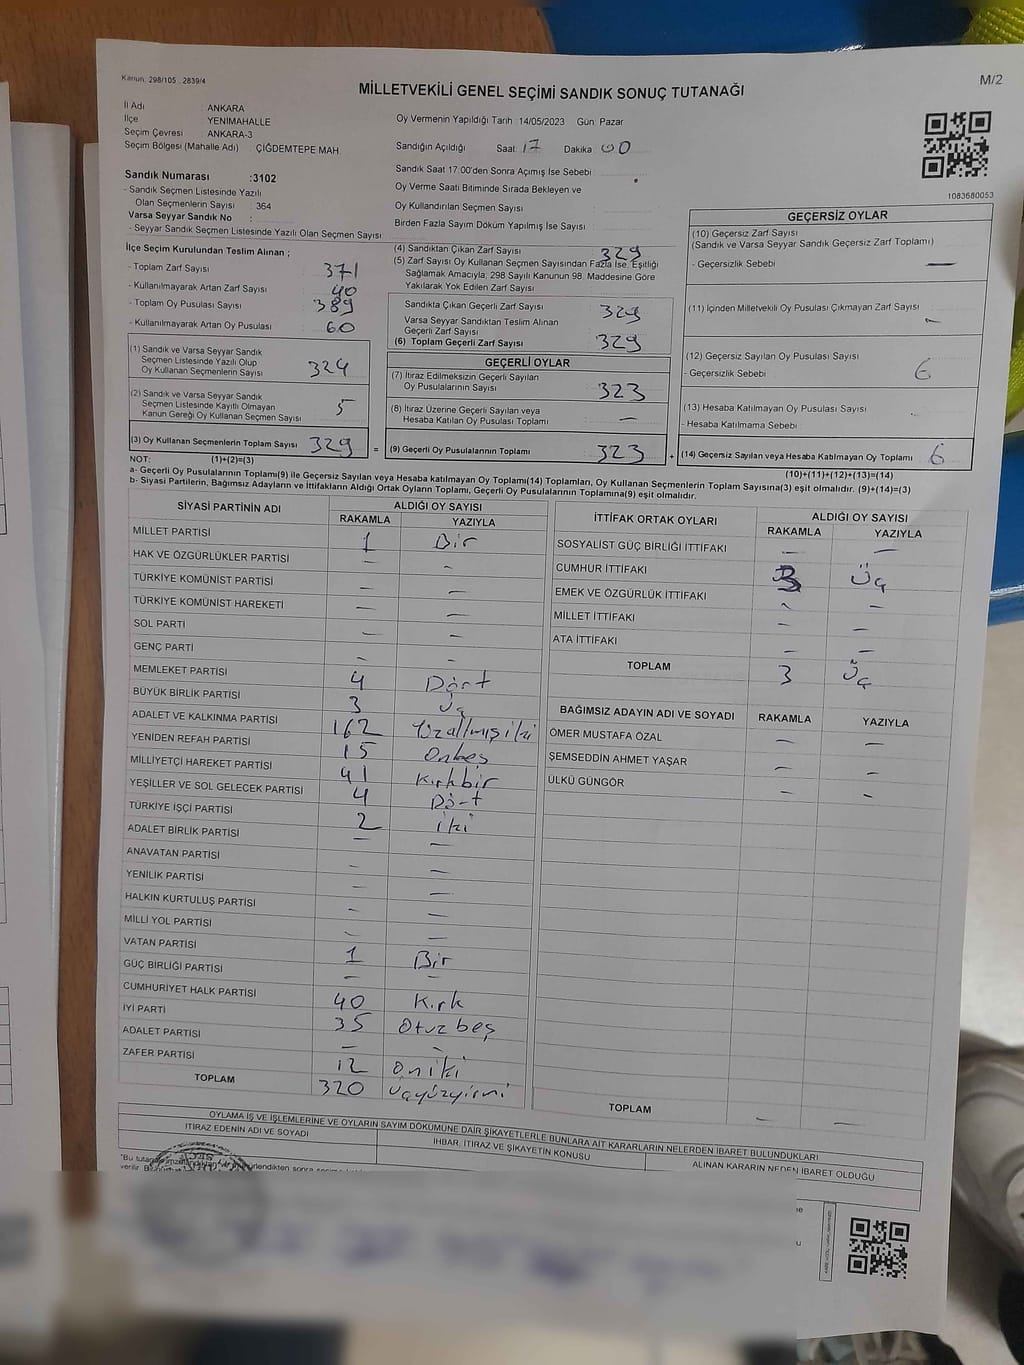 Kanun: 298/105 . 2839/4
M/2
MİLLETVEKİLİ GENEL SEÇİMİ SANDIK SONUÇ TUTANAĞI
İl Adı : ANKARA
İlçe : YENİMAHALLE
Seçim Çevresi : ANKARA-3
Seçim Bölgesi (Mahalle Adı) : ÇİĞDEMTEPE MAH.
Oy Vermenin Yapıldığı Tarih : 14/05/2023 Gün: Pazar
Sandığın Açıldığı Saat: 17 Dakika 00
Sandık Saat 17:00'den Sonra Açımış İse Sebebi :
Oy Verme Saati Bitiminde Sırada Bekleyen ve
Oy Kullandırılan Seçmen Sayısı :
Birden Fazla Sayım Döküm Yapılmış İse Sayısı :
1083680053
Sandık Numarası :3102
- Sandık Seçmen Listesinde Yazılı
Olan Seçmenlerin Sayısı : 364
Varsa Seyyar Sandık No :
- Seyyar Sandık Seçmen Listesinde Yazılı Olan Seçmen Sayısı:
İlçe Seçim Kurulundan Teslim Alınan ;
- Toplam Zarf Sayısı : 371
- Kullanılmayarak Artan Zarf Sayısı : 40
- Toplam Oy Pusulası Sayısı : 389
- Kullanılmayarak Artan Oy Pusulası : 60
(1) Sandık ve Varsa Seyyar Sandık
Seçmen Listesinde Yazılı Olup
Oy Kullanan Seçmenlerin Sayısı : 324
(2) Sandık ve Varsa Seyyar Sandık
Seçmen Listesinde Kayıtlı Olmayan
Kanun Gereği Oy Kullanan Seçmen Sayısı : 5
(3) Oy Kullanan Seçmenlerin Toplam Sayısı : 329 =
(4) Sandıktan Çıkan Zarf Sayısı : 329
(5) Zarf Sayısı Oy Kullanan Seçmen Sayısından Fazla İse, Eşitliği
Sağlamak Amacıyla; 298 Sayılı Kanunun 98. Maddesine Göre
Yakılarak Yok Edilen Zarf Sayısı :
Sandıkta Çıkan Geçerli Zarf Sayısı : 329
Varsa Seyyar Sandıktan Teslim Alınan
Geçerli Zarf Sayısı :
(6) Toplam Geçerli Zarf Sayısı : 329
GEÇERLİ OYLAR
(7) İtiraz Edilmeksizin Geçerli Sayılan
Oy Pusulalarının Sayısı : 323
(8) İtiraz Üzerine Geçerli Sayılan veya
Hesaba Katılan Oy Pusulası Toplamı : —
(9) Geçerli Oy Pusulalarının Toplamı : 323 +
GEÇERSİZ OYLAR
(10) Geçersiz Zarf Sayısı
(Sandık ve Varsa Seyyar Sandık Geçersiz Zarf Toplamı)
- Geçersizlik Sebebi : —
(11) İçinden Milletvekili Oy Pusulası Çıkmayan Zarf Sayısı : —
(12) Geçersiz Sayılan Oy Pusulası Sayısı : 6
- Geçersizlik Sebebi :
(13) Hesaba Katılmayan Oy Pusulası Sayısı :
- Hesaba Katılmama Sebebi :
(14) Geçersiz Sayılan veya Hesaba Katılmayan Oy Toplamı : 6
NOT: (1)+(2)=(3) (10)+(11)+(12)+(13)=(14)
a- Geçerli Oy Pusulalarının Toplamı(9) ile Geçersiz Sayılan veya Hesaba katılmayan Oy Toplamı(14) Toplamları, Oy Kullanan Seçmenlerin Toplam Sayısına(3) eşit olmalıdır. (9)+(14)=(3)
b- Siyasi Partilerin, Bağımsız Adayların ve İttifakların Aldığı Ortak Oyların Toplamı, Geçerli Oy Pusulalarının Toplamına(9) eşit olmalıdır.
SİYASİ PARTİNİN ADI ALDIĞI OY SAYISI
RAKAMLA YAZIYLA
MİLLET PARTİSİ 1 Bir
HAK VE ÖZGÜRLÜKLER PARTİSİ — —
TÜRKİYE KOMÜNİST PARTİSİ — —
TÜRKİYE KOMÜNİST HAREKETİ — —
SOL PARTİ — —
GENÇ PARTİ — —
MEMLEKET PARTİSİ 4 Dört
BÜYÜK BİRLİK PARTİSİ 3 Üç
ADALET VE KALKINMA PARTİSİ 162 Yüzaltmışiki
YENİDEN REFAH PARTİSİ 15 Onbeş
MİLLİYETÇİ HAREKET PARTİSİ 41 Kırkbir
YEŞİLLER VE SOL GELECEK PARTİSİ 4 Dört
TÜRKİYE İŞÇİ PARTİSİ 2 iki
ADALET BİRLİK PARTİSİ — —
ANAVATAN PARTİSİ — —
YENİLİK PARTİSİ — —
HALKIN KURTULUŞ PARTİSİ — —
MİLLİ YOL PARTİSİ — —
VATAN PARTİSİ 1 Bir
GÜÇ BİRLİĞİ PARTİSİ — —
CUMHURİYET HALK PARTİSİ 40 Kırk
İYİ PARTİ 35 Otuzbeş
ADALET PARTİSİ — —
ZAFER PARTİSİ 12 Oniki
TOPLAM 320 Üçyüzyirmi
İTTİFAK ORTAK OYLARI ALDIĞI OY SAYISI
RAKAMLA YAZIYLA
SOSYALİST GÜÇ BİRLİĞİ İTTİFAKI — —
CUMHUR İTTİFAKI 3 Üç
EMEK VE ÖZGÜRLÜK İTTİFAKI — —
MİLLET İTTİFAKI — —
ATA İTTİFAKI — —
TOPLAM 3 Üç
BAĞIMSIZ ADAYIN ADI VE SOYADI RAKAMLA YAZIYLA
ÖMER MUSTAFA ÖZAL — —
ŞEMSEDDİN AHMET YAŞAR — —
ÜLKÜ GÜNGÖR — —
TOPLAM — —
OYLAMA İŞ VE İŞLEMLERİNE VE OYLARIN SAYIM DÖKÜMÜNE DAİR ŞİKAYETLERLE BUNLARA AİT KARARLARIN NELERDEN İBARET BULUNDUKLARI
İTİRAZ EDENİN ADI VE SOYADI İHBAR, İTİRAZ VE ŞİKAYETİN KONUSU ALINAN KARARIN NEDEN İBARET OLDUĞU